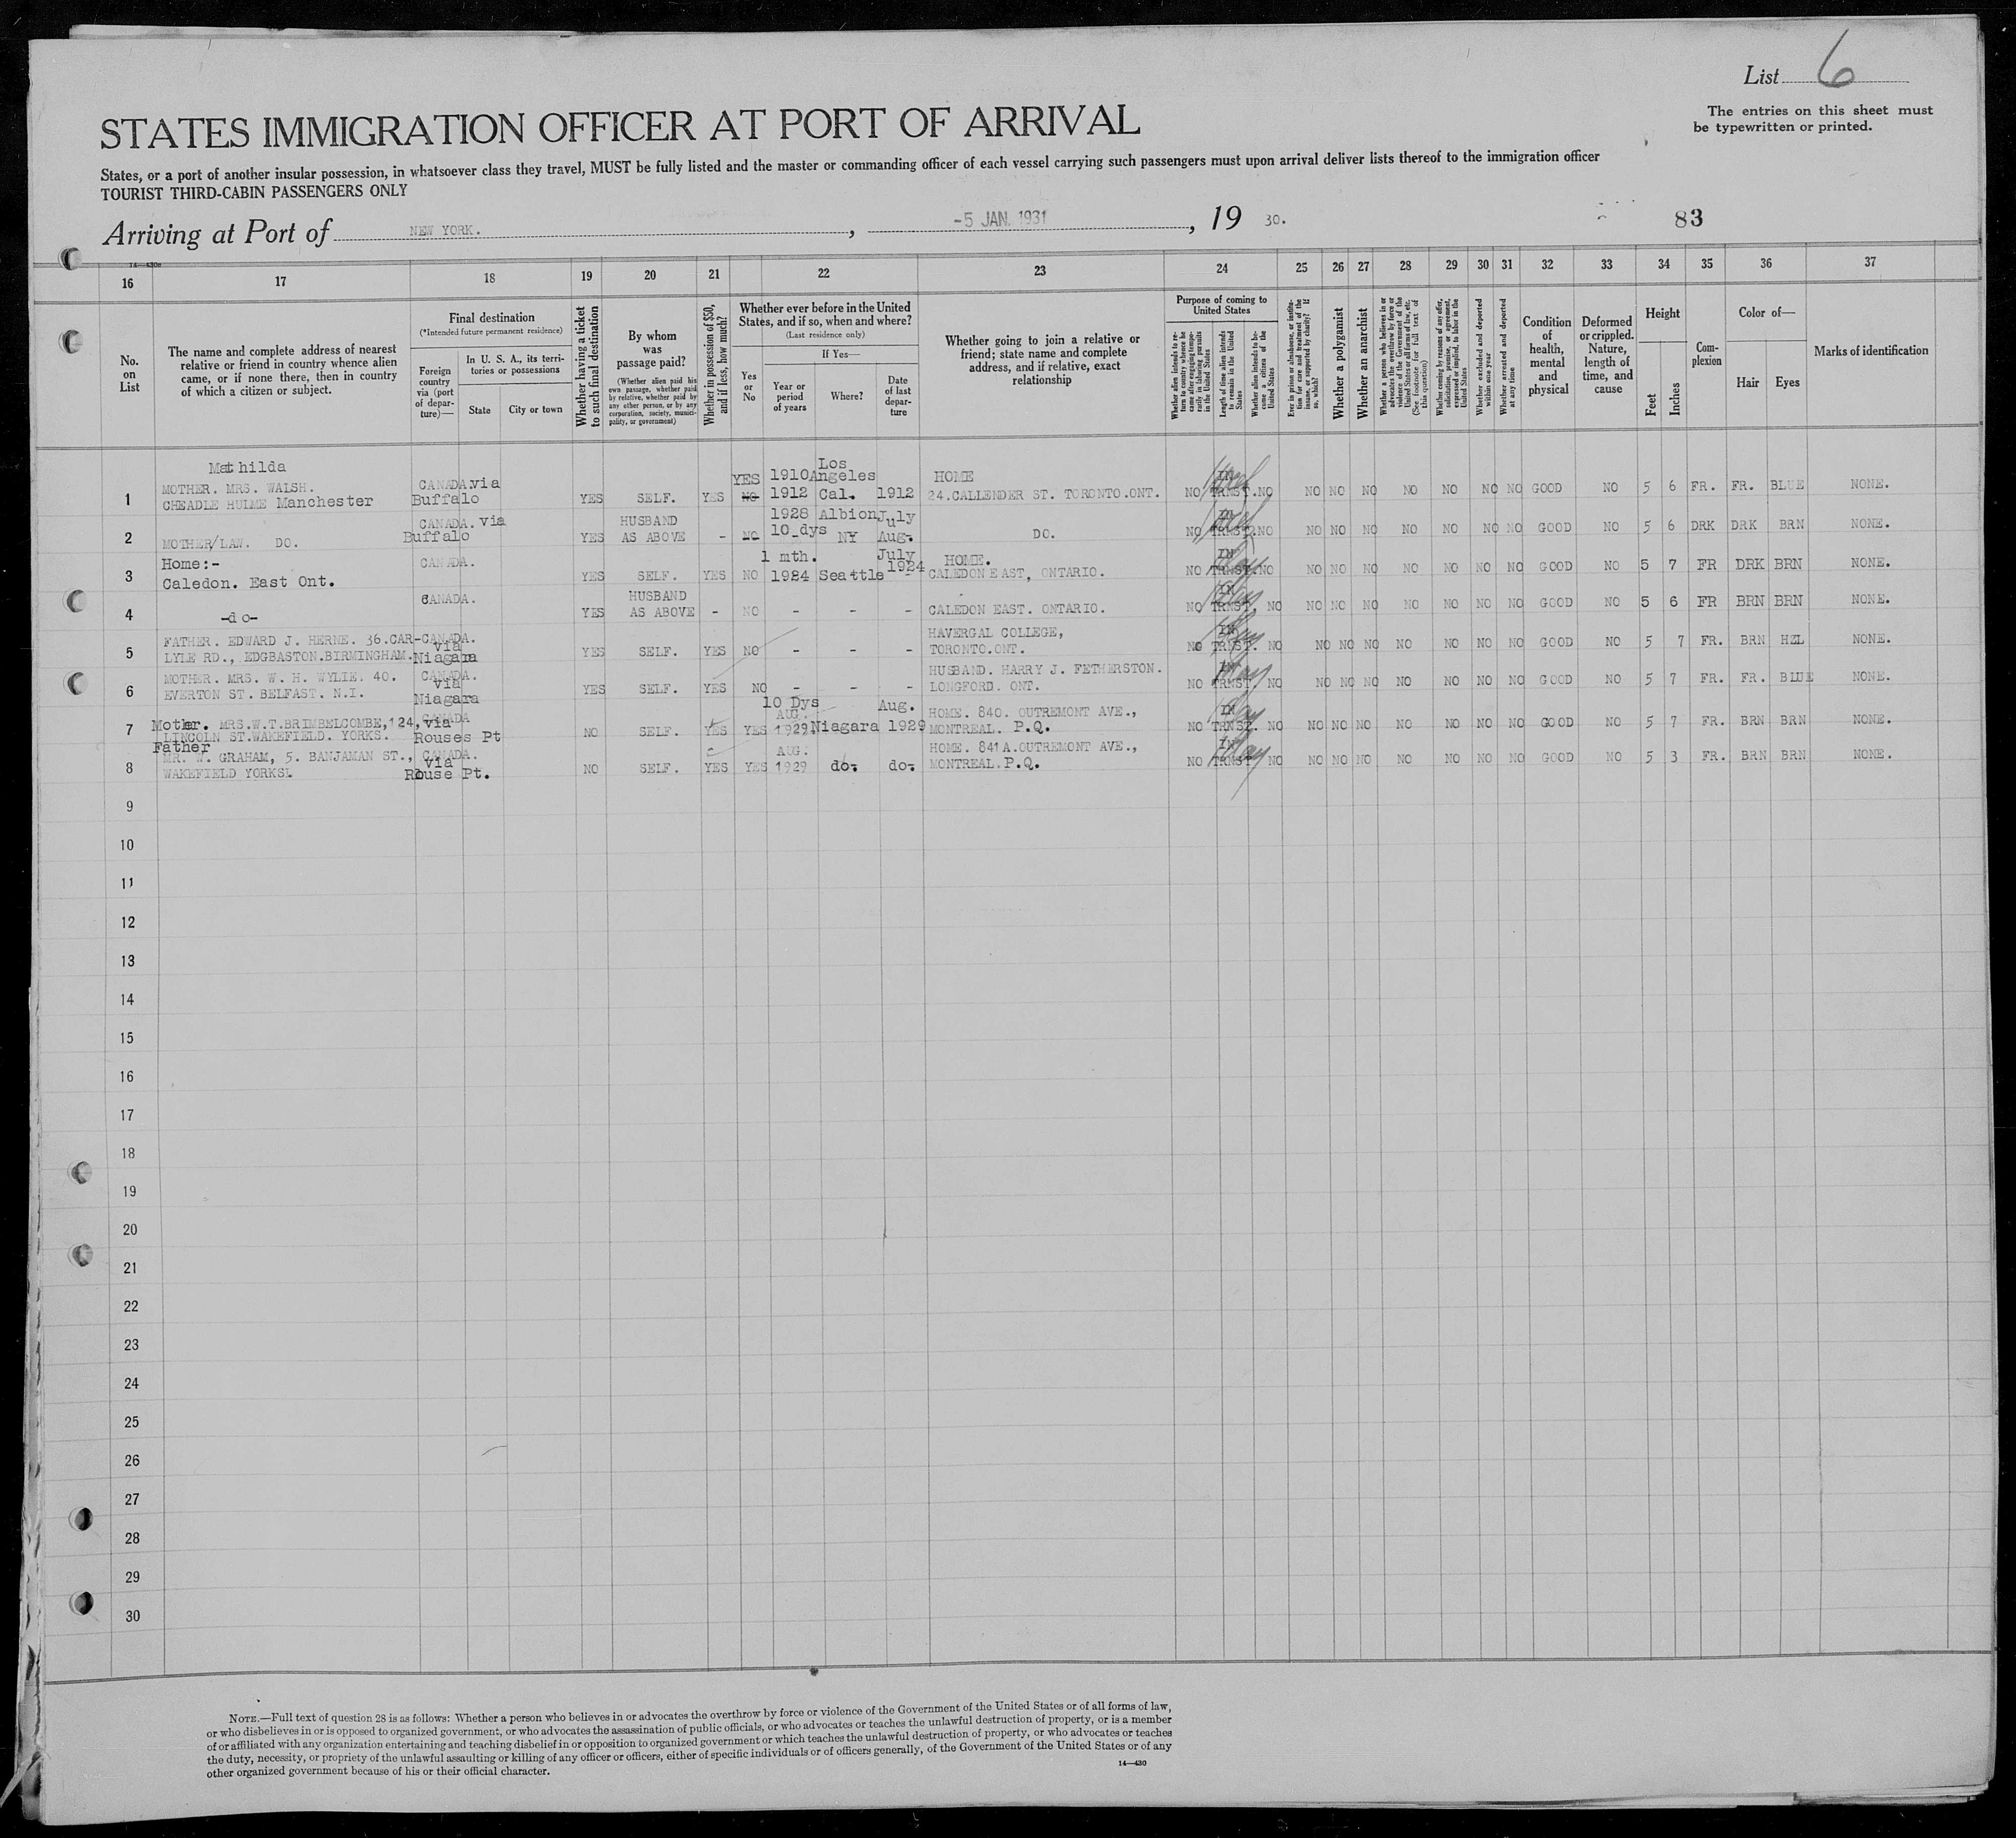 List 6
The entries on this sheet must
be typewritten or printed.
STATES IMMIGRATION OFFICER AT PORT OF ARRIVAL
States, or a port of another insular possession, in whatsoever class they travel, MUST be fully listed and the master or commanding officer of each vessel carrying such passengers must upon arrival deliver lists thereof to the immigration officer
TOURIST THIRD-CABIN PASSENGERS ONLY
Arriving at Port of NEW YORK. , -5 JAN. 1931 , 19 30. 83
16 17 18 19 20 21 22 23 24 25 26 27 28 29 30 31 32 33 34 35 36 37
No. on List
The name and complete address of nearest
relative or friend in country whence alien
came, or if none there, then in country
of which a citizen or subject.
Final destination
(*Intended future permanent residence)
Foreign country via (port of departure)—
In U. S. A., its territories or possessions
State
City or town
Whether having a ticket to such final destination
By whom was passage paid?
(Whether alien paid his own passage, whether paid by relative, whether paid by any other person, or by any corporation, society, municipality, or government)
Whether in possession of $50, and if less, how much?
Whether ever before in the United
States, and if so, when and where?
(Last residence only)
Yes or No
If Yes—
Year or period of years
Where?
Date of last departure
Whether going to join a relative or
friend; state name and complete
address, and if relative, exact
relationship
Purpose of coming to United States
Whether alien intends to return to country whence he came after engaging temporarily in laboring pursuits in the United States
Length of time alien intends to remain in the United States
Whether alien intends to become a citizen of the United States
Ever in prison or almshouse, or institution for care and treatment of the insane, or supported by charity? If so, which?
Whether a polygamist
Whether an anarchist
Whether a person who believes in or advocates the overthrow by force or violence of the Government of the United States or all forms of law, etc. (See footnote for full text of this question)
Whether coming by reasons of any offer, solicitation, promise, or agreement, expressed or implied, to labor in the United States
Whether excluded and deported within one year
Whether arrested and deported at any time
Condition of health, mental and physical
Deformed or crippled. Nature, length of time, and cause
Height
Feet
Inches
Complexion
Color of—
Hair
Eyes
Marks of identification
Mathilda Los
MOTHER. MRS. WALSH. CANADA.via YES 1910 Angeles HOME IN
1 CHEADLE HULME Manchester Buffalo YES SELF. YES NO 1912 Cal. 1912 24.CALLENDER ST. TORONTO.ONT. NO TRNST. NO NO NO NO NO NO NO NO GOOD NO 5 6 FR. FR. BLUE NONE.
CANADA. via HUSBAND 1928 Albion July IN
2 MOTHER/LAW. DO. Buffalo YES AS ABOVE - NO 10 dys NY Aug. DO. NO TRNST. NO NO NO NO NO NO NO NO GOOD NO 5 6 DRK DRK BRN NONE.
Home:- CANADA. 1 mth. July HOME. IN
3 Caledon. East Ont. YES SELF. YES NO 1924 Seattle 1924 CALEDON EAST, ONTARIO. NO TRNST. NO NO NO NO NO NO NO NO GOOD NO 5 7 FR DRK BRN NONE.
CANADA. HUSBAND IN
4 -do- YES AS ABOVE - NO - - - CALEDON EAST. ONTARIO. NO TRNST. NO NO NO NO NO NO NO NO GOOD NO 5 6 FR BRN BRN NONE.
FATHER. EDWARD J. HERNE. 36.CAR- CANADA. HAVERGAL COLLEGE, IN
5 LYLE RD., EDGBASTON.BIRMINGHAM. via Niagara YES SELF. YES NO - - - TORONTO.ONT. NO TRNST. NO NO NO NO NO NO NO NO GOOD NO 5 7 FR. BRN HZL NONE.
MOTHER. MRS. W. H. WYLIE. 40. CANADA. HUSBAND. HARRY J. FETHERSTON. IN
6 EVERTON ST. BELFAST. N.I. via Niagara YES SELF. YES NO - - - LONGFORD. ONT. NO TRNST. NO NO NO NO NO NO NO NO GOOD NO 5 7 FR. FR. BLUE NONE.
10 Dys Aug.
Mother. MRS.W.T.BRIMBELCOMBE,124, CANADA via AUG. HOME. 840. OUTREMONT AVE., IN
7 LINCOLN ST.WAKEFIELD. YORKS. Rouses Pt NO SELF. YES YES 1929. Niagara 1929 MONTREAL. P.Q. NO TRNST. NO NO NO NO NO NO NO NO GOOD NO 5 7 FR. BRN BRN NONE.
Father
MR. W. GRAHAM, 5. BANJAMAN ST., CANADA. AUG. HOME. 841A.OUTREMONT AVE., IN
8 WAKEFIELD YORKS. via Rouse Pt. NO SELF. YES YES 1929 do- do- MONTREAL.P.Q. NO TRNST NO NO NO NO NO NO NO NO GOOD NO 5 3 FR. BRN BRN NONE.
9
10
11
12
13
14
15
16
17
18
19
20
21
22
23
24
25
26
27
28
29
30
NOTE.—Full text of question 28 is as follows: Whether a person who believes in or advocates the overthrow by force or violence of the Government of the United States or of all forms of law,
or who disbelieves in or is opposed to organized government, or who advocates the assassination of public officials, or who advocates or teaches the unlawful destruction of property, or is a member
of or affiliated with any organization entertaining and teaching disbelief in or opposition to organized government or which teaches the unlawful destruction of property, or who advocates or teaches
the duty, necessity, or propriety of the unlawful assaulting or killing of any officer or officers, either of specific individuals or of officers generally, of the Government of the United States or of any
other organized government because of his or their official character.
14—430